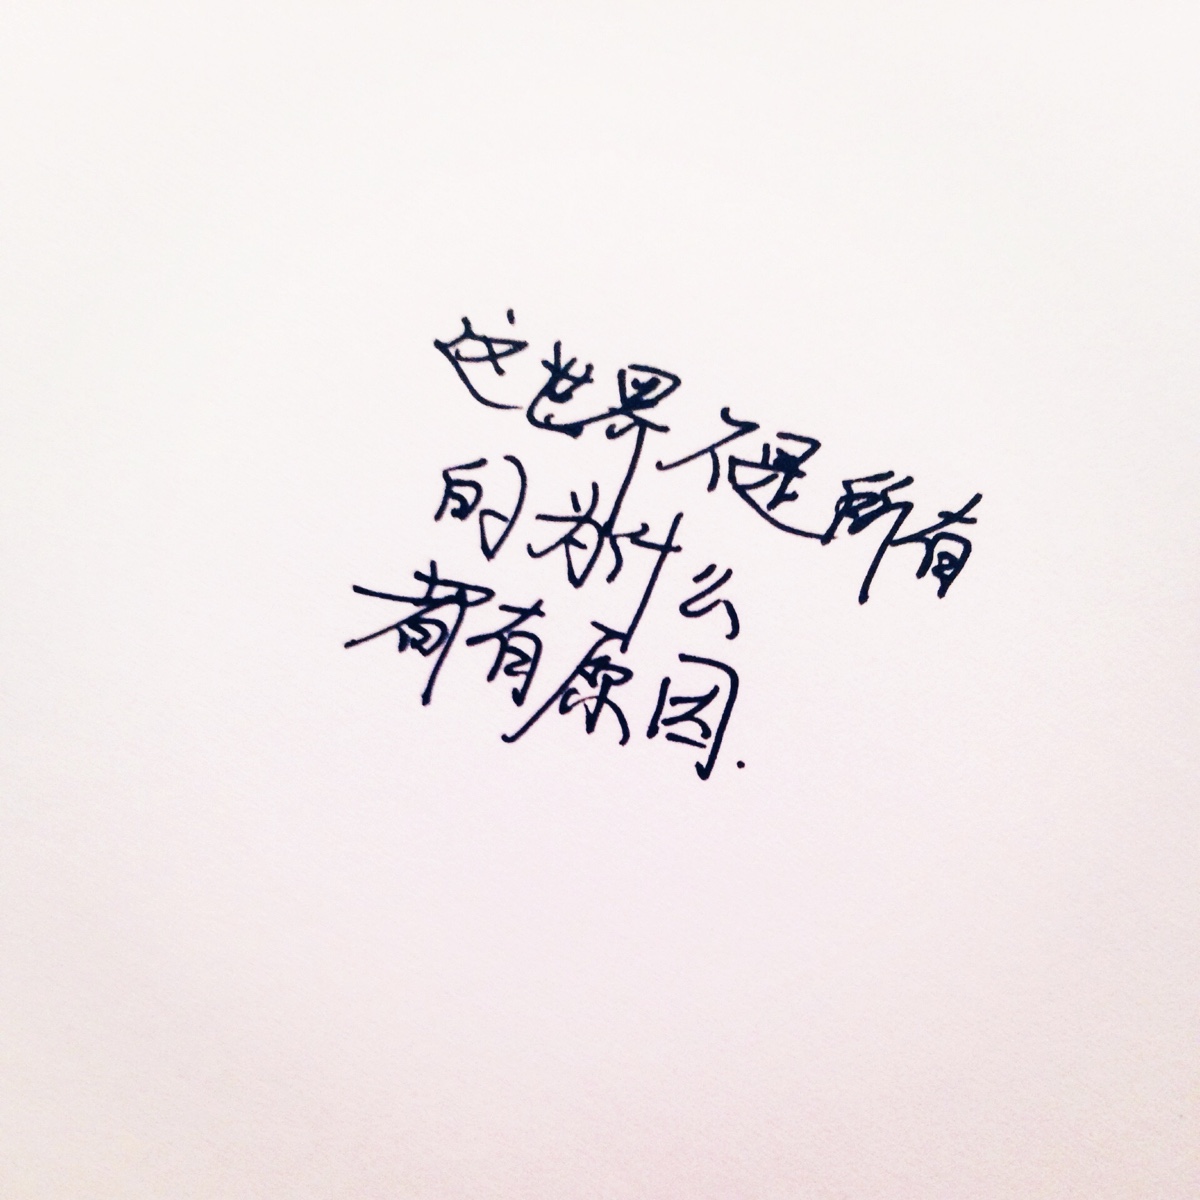 这世界不是所有
的为什么
都有原因.